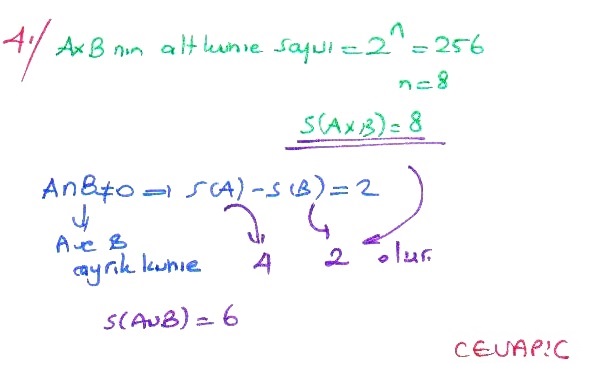 4-/ AxB nın alt küme sayısı = 2^n = 256
n=8
S(AxB)=8
A∩B≠0 ⇒ S(A)-S(B)=2
↓
A ve B ayrık küme
4 2 olur.
S(A∪B)=6
CEVAP:C